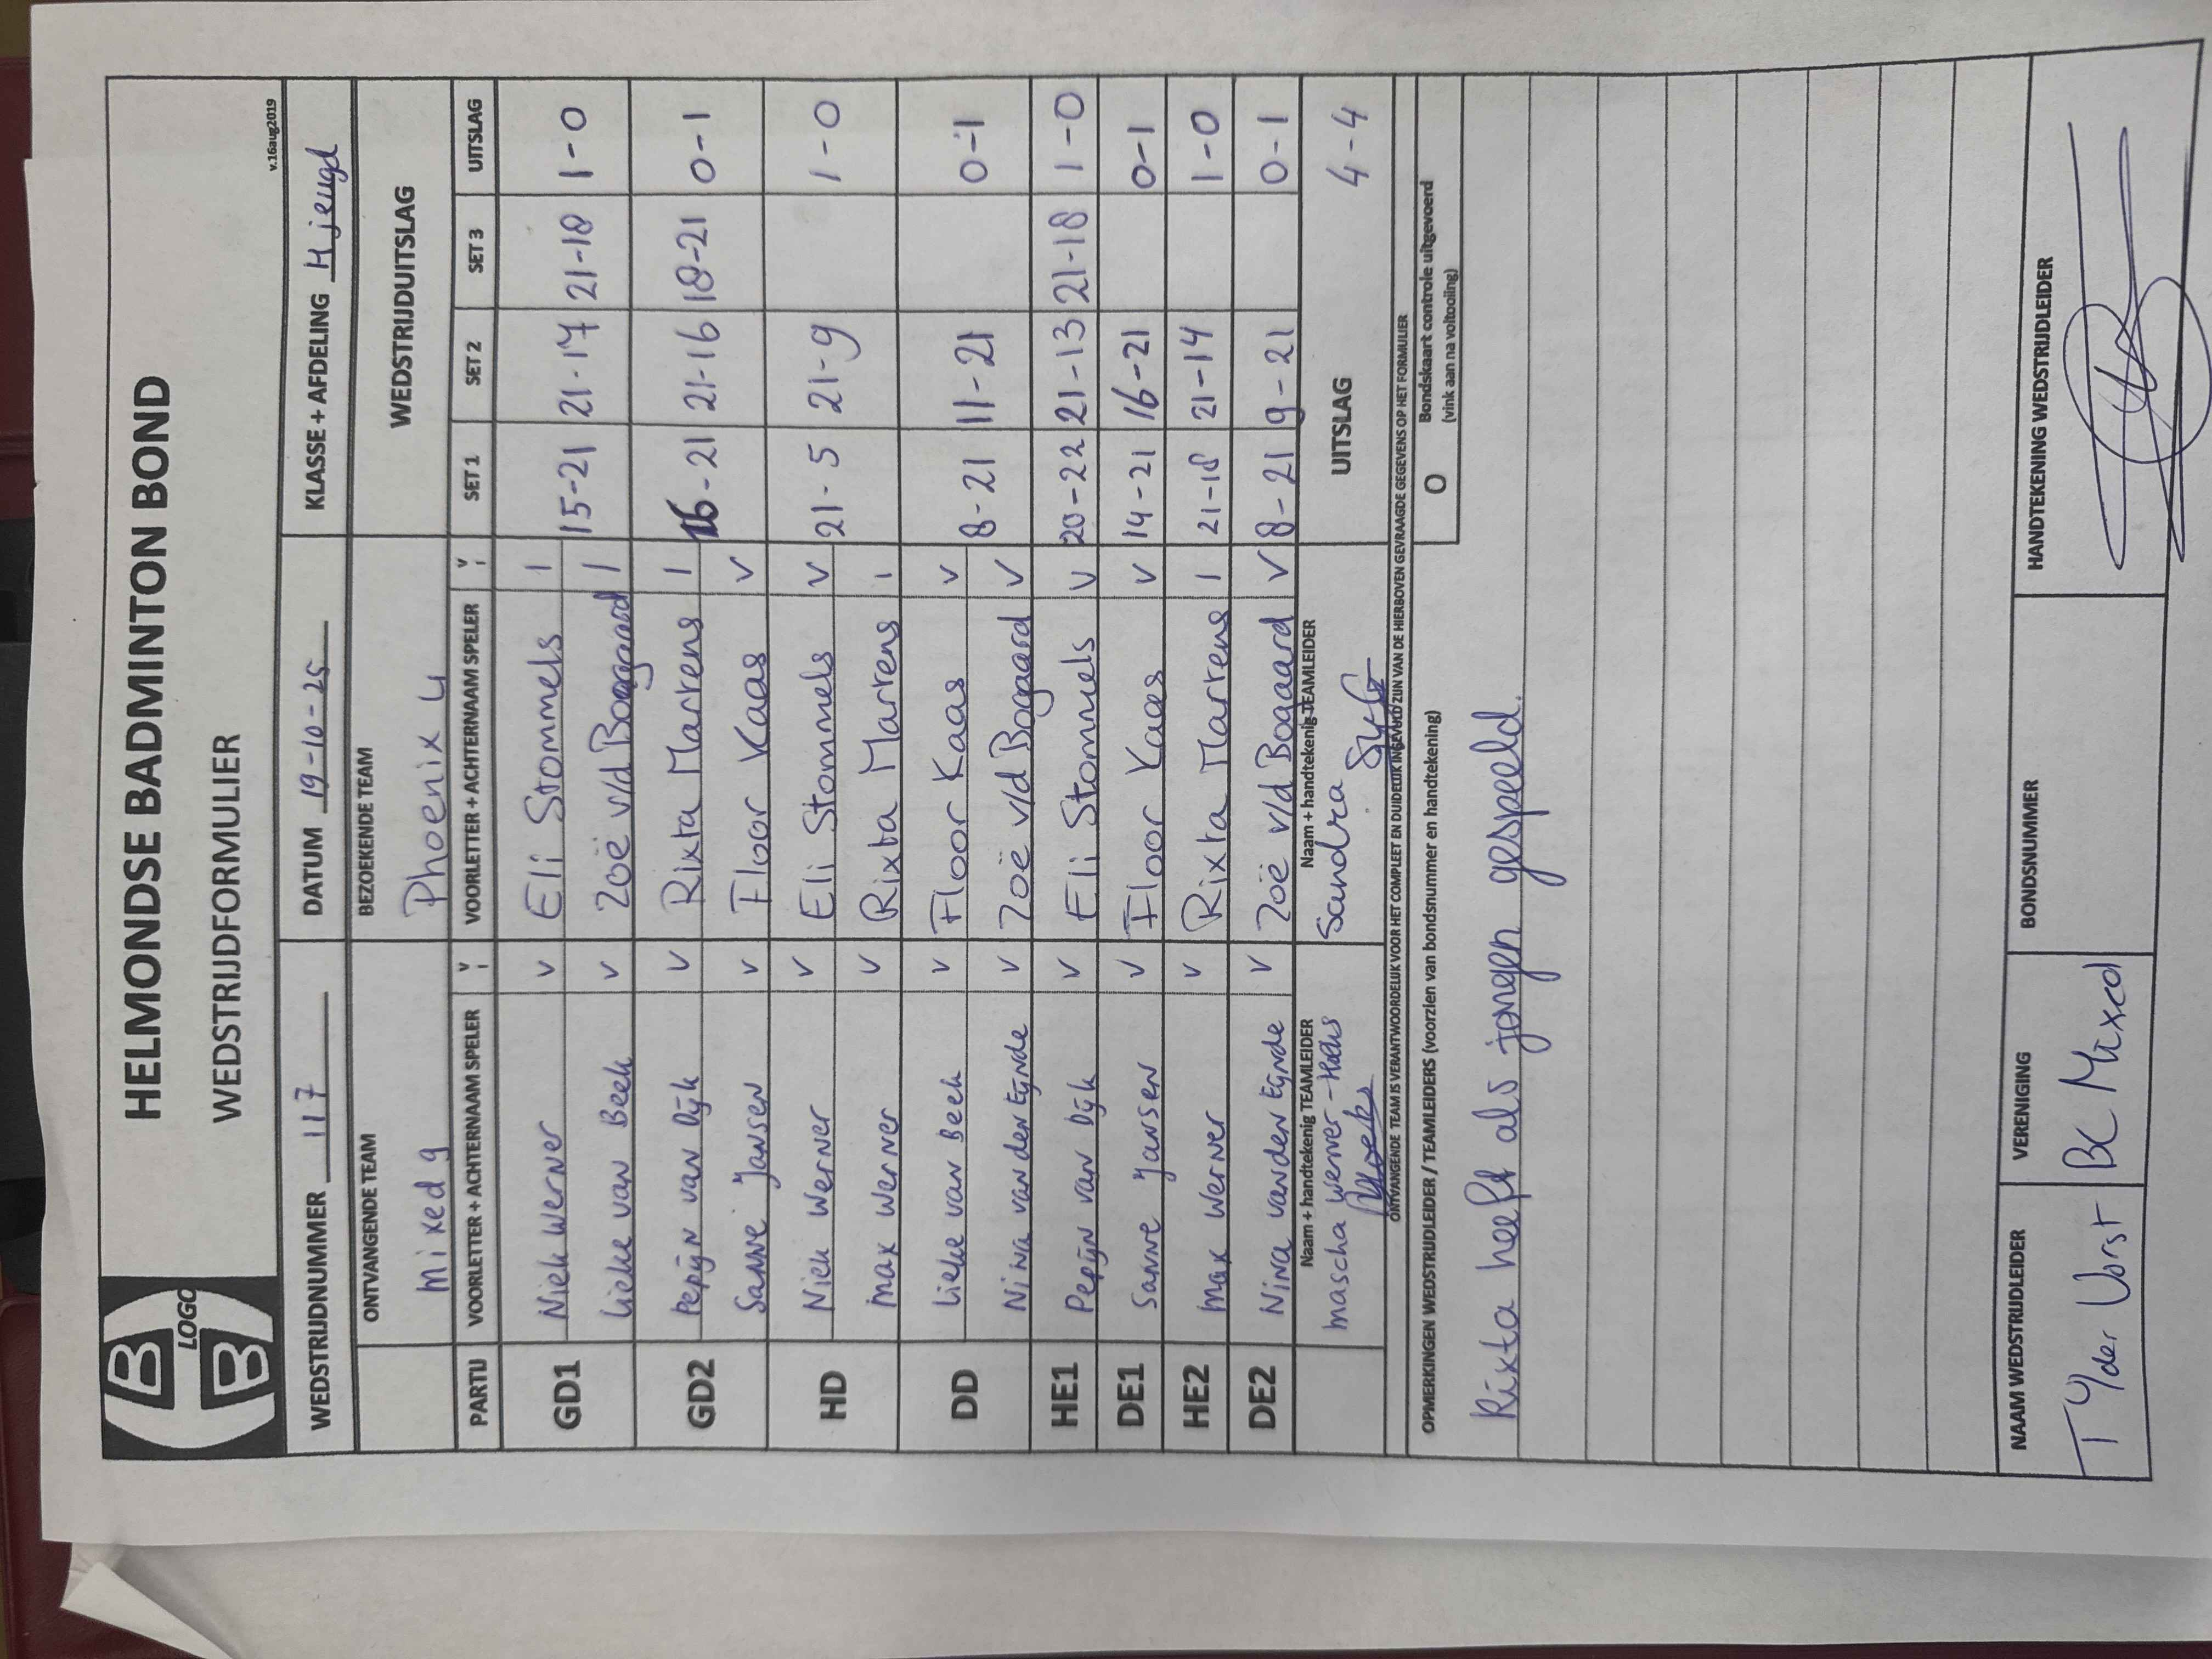 HELMONDSE BADMINTON BOND
B
B
LOGO
WEDSTRIJDFORMULIER
v.16aug2019
WEDSTRIJDNUMMER 117 DATUM 19-10-25 KLASSE + AFDELING Hjeugd
ONTVANGENDE TEAM BEZOEKENDE TEAM WEDSTRIJDUITSLAG
mixed 9 Phoenix 4
PARTIJ VOORLETTER + ACHTERNAAM SPELER V/I VOORLETTER + ACHTERNAAM SPELER V/I SET 1 SET 2 SET 3 UITSLAG
GD1 Niek Werner v Eli Stommels I 15-21 21-17 21-18 1-0
Lieke van Beek v Zoë v/d Bogaard I
GD2 Pepijn van Dijk v Rixta Martens I 16-21 21-16 18-21 0-1
Sanne Jansen v Floor Kaas v
HD Niek Werner v Eli Stommels v 21-5 21-9 1-0
max Werner v Rixta Martens I
DD Lieke van Beek v Floor Kaas v 8-21 11-21 0-1
Nina van den Eijnde v Zoë v/d Bogaard v
HE1 Pepijn van Dijk v Eli Stommels v 20-22 21-13 21-18 1-0
DE1 Sanne Jansen v Floor Kaas v 14-21 16-21 0-1
HE2 max Werner v Rixta Martens I 21-18 21-14 1-0
DE2 Nina van den Eijnde v Zoë v/d Bogaard v 8-21 9-21 0-1
Naam + handtekenig TEAMLEIDER Naam + handtekenig TEAMLEIDER UITSLAG 4-4
mascha werner Sandra
ONTVANGENDE TEAM IS VERANTWOORDELIJK VOOR HET COMPLEET EN DUIDELIJK INGEVULD ZIJN VAN DE HIERBOVEN GEVRAAGDE GEGEVENS OP HET FORMULIER
OPMERKINGEN WEDSTRIJDLEIDER / TEAMLEIDERS (voorzien van bondsnummer en handtekening) O Bondskaart controle uitgevoerd
(vink aan na voltooiing)
Rixta heeft als jongen gespeeld.
NAAM WEDSTRIJDLEIDER VERENIGING BONDSNUMMER HANDTEKENING WEDSTRIJDLEIDER
Vorst BC Mixed